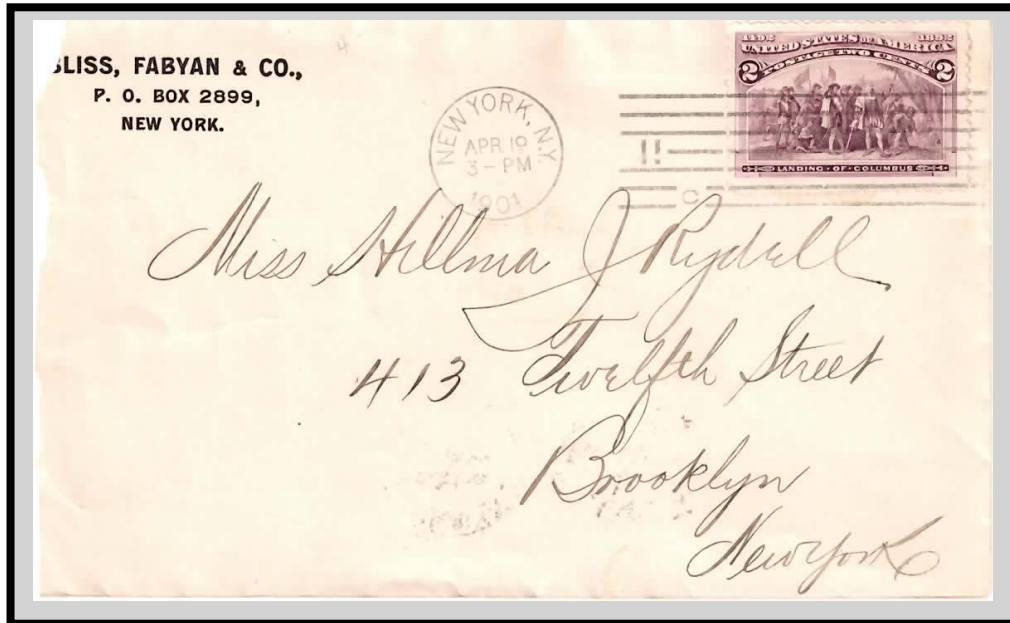 BLISS, FABYAN & CO.,
P. O. BOX 2899,
NEW YORK.
4
NEW YORK, N.Y.
APR 19
3 - PM
1901
C
1492 1892
UNITED STATES OF AMERICA
POSTAGE TWO CENTS
2 2
LANDING · OF · COLUMBUS
Miss Hillma J Rydell
413 Twelfth Street
Brooklyn
New York